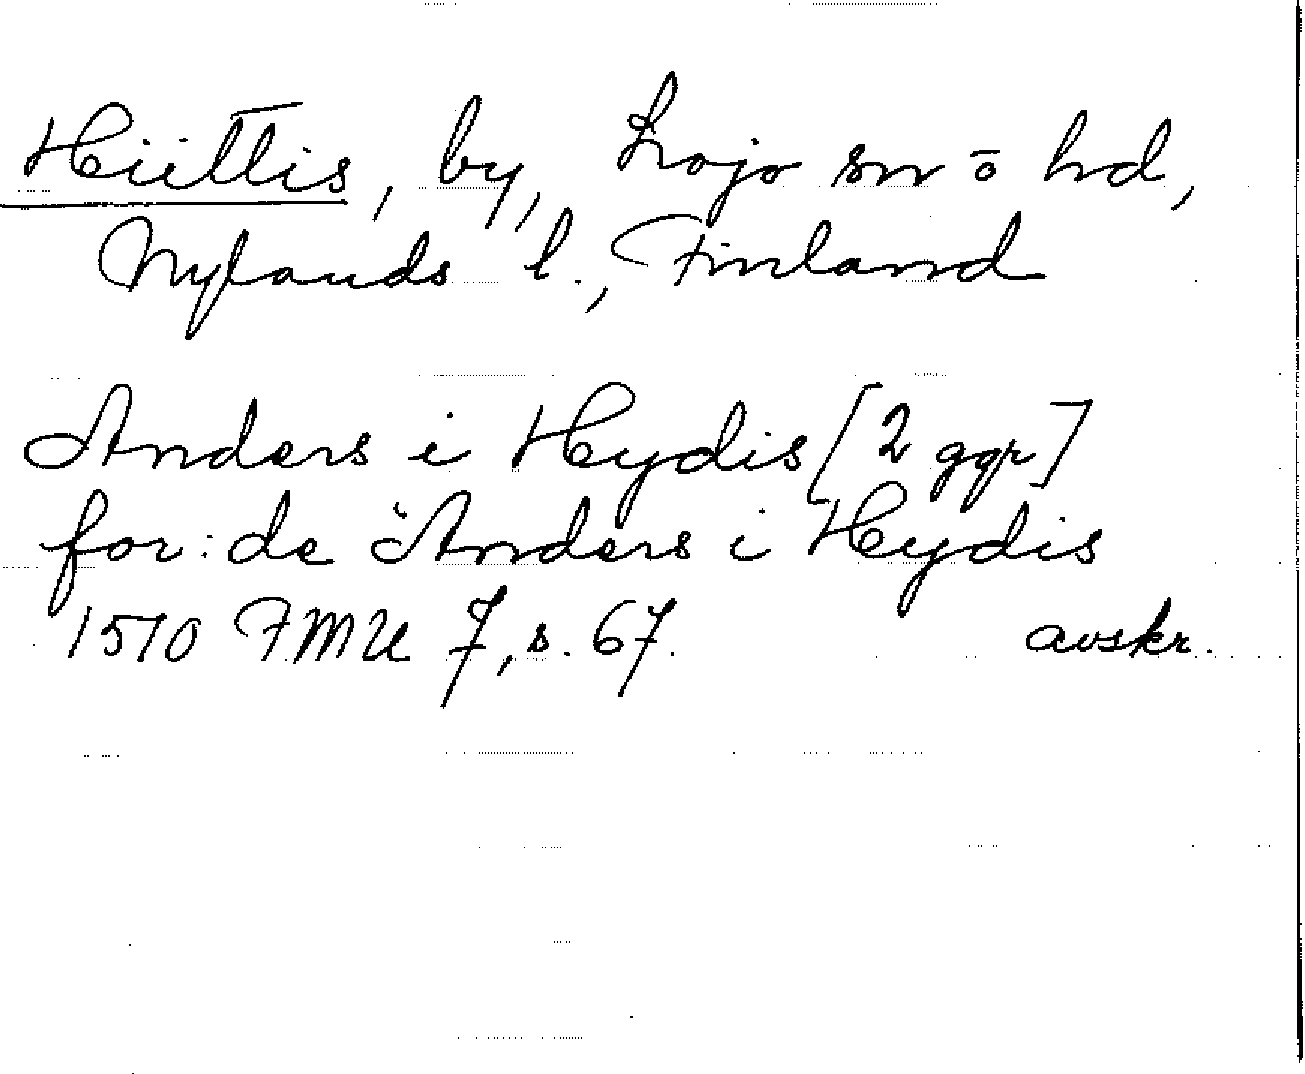 Hiittis, by, Lojo sn o hd,
Nylands l., Finland
Anders i Heydis [2 ggr]
for: de Anders i Heydis
1510 FMU 7, s. 67. avskr.